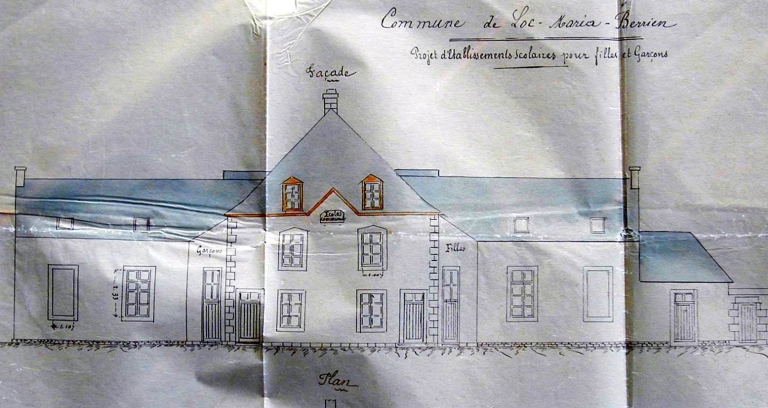 Commune de Loc-Maria-Berrien
Projet d'Etablissements scolaires pour filles et Garçons
Façade
Garçons
Filles
Plan